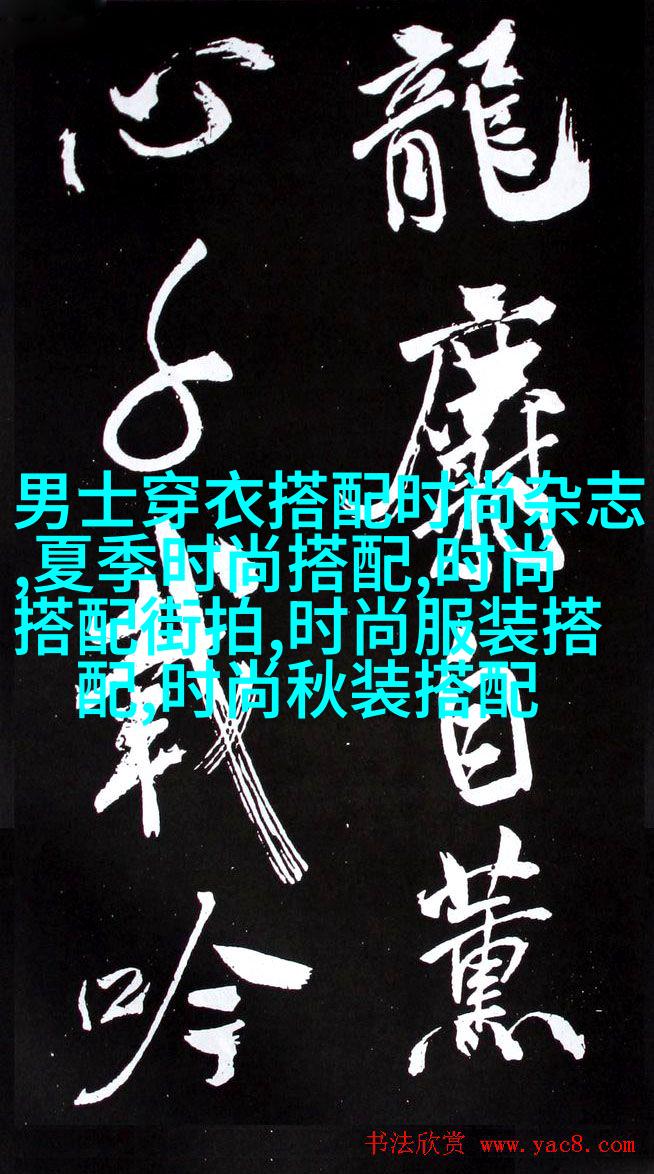 龍麝自薰
心千載吟
男士穿衣搭配时尚杂志
,夏季时尚搭配,时尚
搭配街拍,时尚服装搭
配,时尚秋装搭配
书法欣赏 www.yac8.com